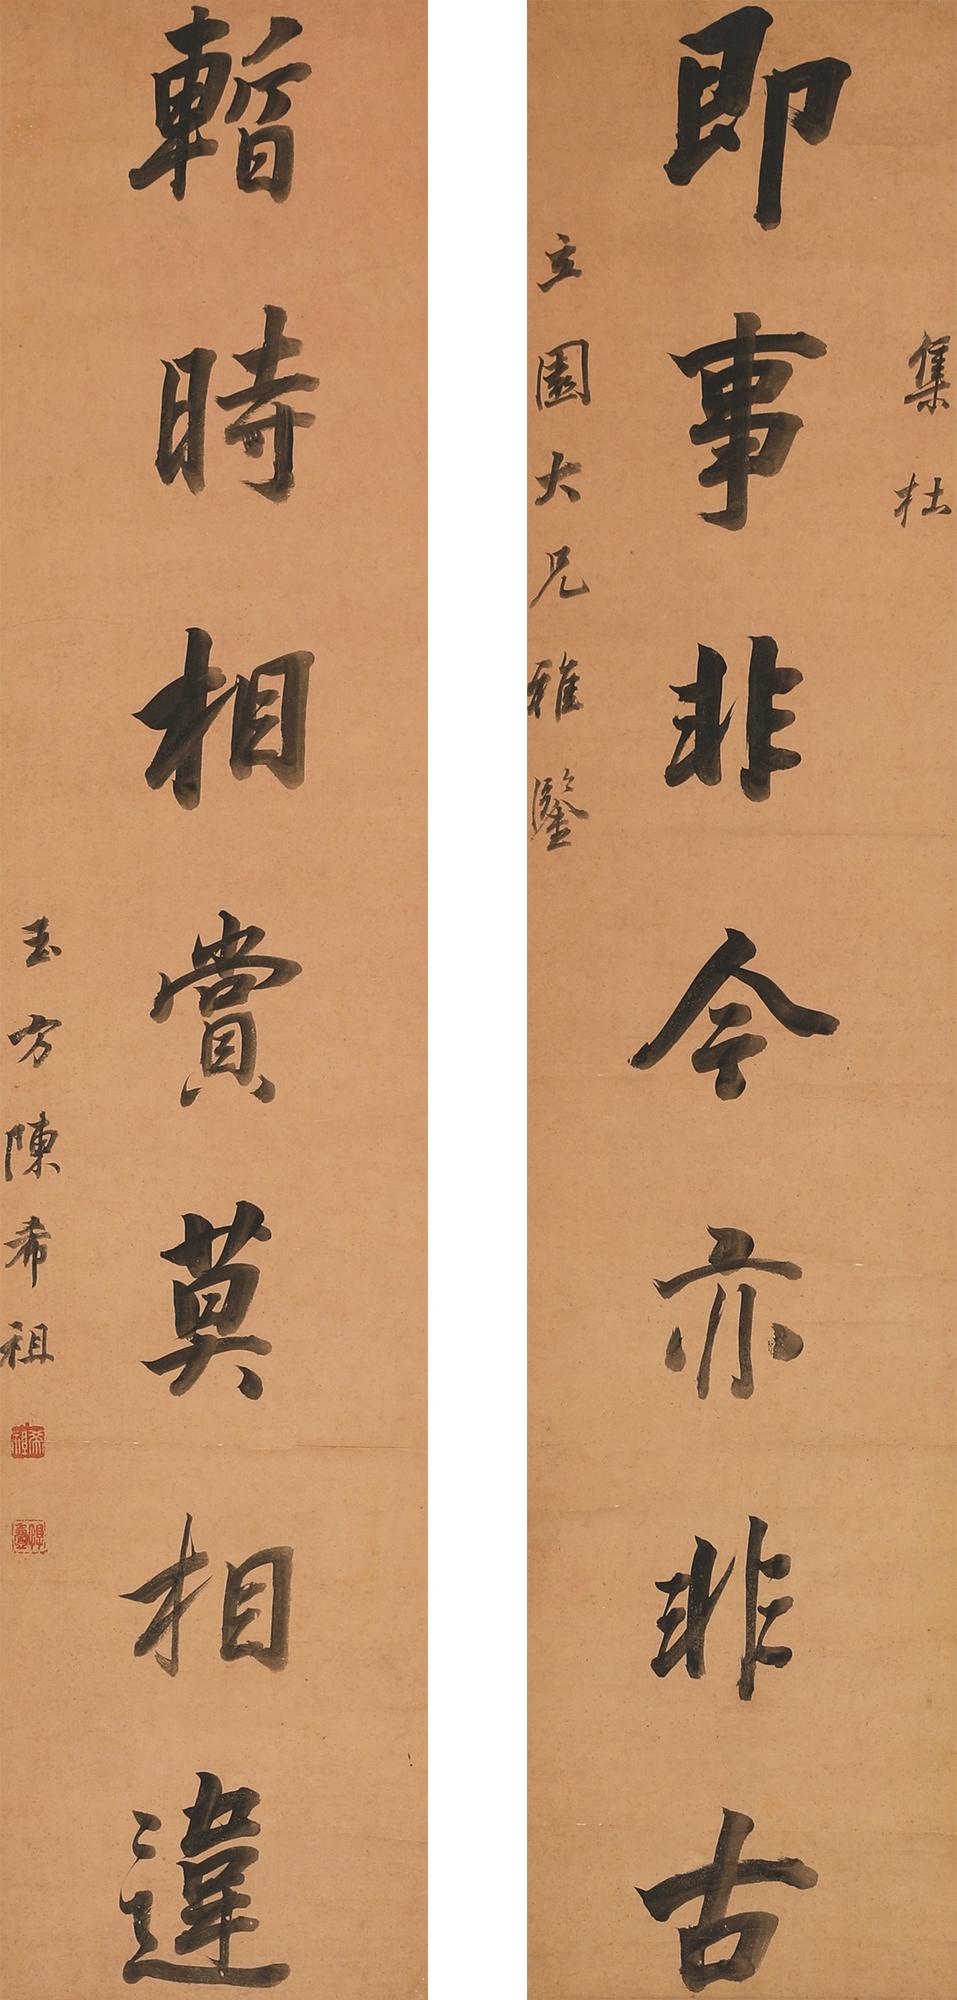 集杜
即事非今亦非古
立園大兄雅鑒
暫時相賞莫相違
玉方陳希祖
希祖